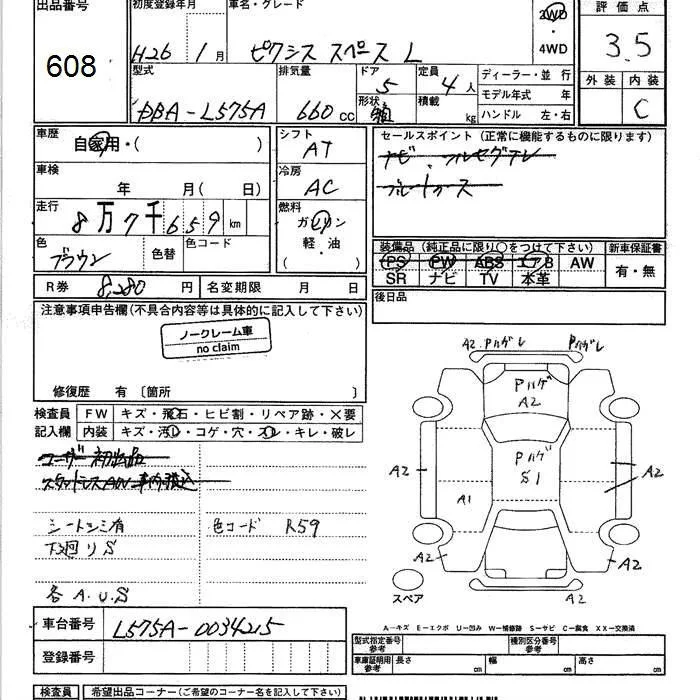 出品番号
608
初度登録年月
H26年 1月
車名・グレード
ピクシス スペース L
2WD
・
4WD
評価点
3.5
外装 内装
C
型式
DBA-L575A
排気量
660 cc
ドア
5
形状
定員
4人
積載
kg
ディーラー・並行
モデル年式 年
ハンドル 左・右
車歴
自家用・( )
車検
年 月( 日)
走行
8万7千659 km
色
ブラウン
色替
色コード
シフト
AT
冷房
AC
燃料
ガソリン
軽・油
( )
セールスポイント(正常に機能するものに限ります)
ナビ・フルセグテレ
装備品(純正品に限り○をつけて下さい)
PS PW ABS エアB AW
SR ナビ TV 本革
新車保証書
有・無
R券 8,280円
名変期限 月 日
後日品
注意事項申告欄(不具合内容等は具体的に記入して下さい)
ノークレーム車
no claim
修復歴 有〔箇所 〕
検査員
記入欄
FW キズ・飛石・ヒビ割・リペア跡・×要
内装 キズ・汚レ・コゲ・穴・スレ・キレ・破レ
ユーザー初出品
スタッドレスAW車内積込
シートシミ有
色コード R59
下廻りS
各A.U.S
A2.Pハゲレ
Pハゲレ
Pハゲ
A2
Pハゲ
S1
A2
A1
A2
A2
A2
A2
スペア
A…キズ E…エクボ U…凹み W…補修跡 S…サビ C…腐食 XX…交換済
車台番号 L575A-0034215
登録番号
型式指定番号
参考
種別区分番号
参考
車庫証明用
参考
長さ cm
幅 cm
高さ cm
検査員
希望出品コーナー(ご希望のコーナー名を記入して下さい)